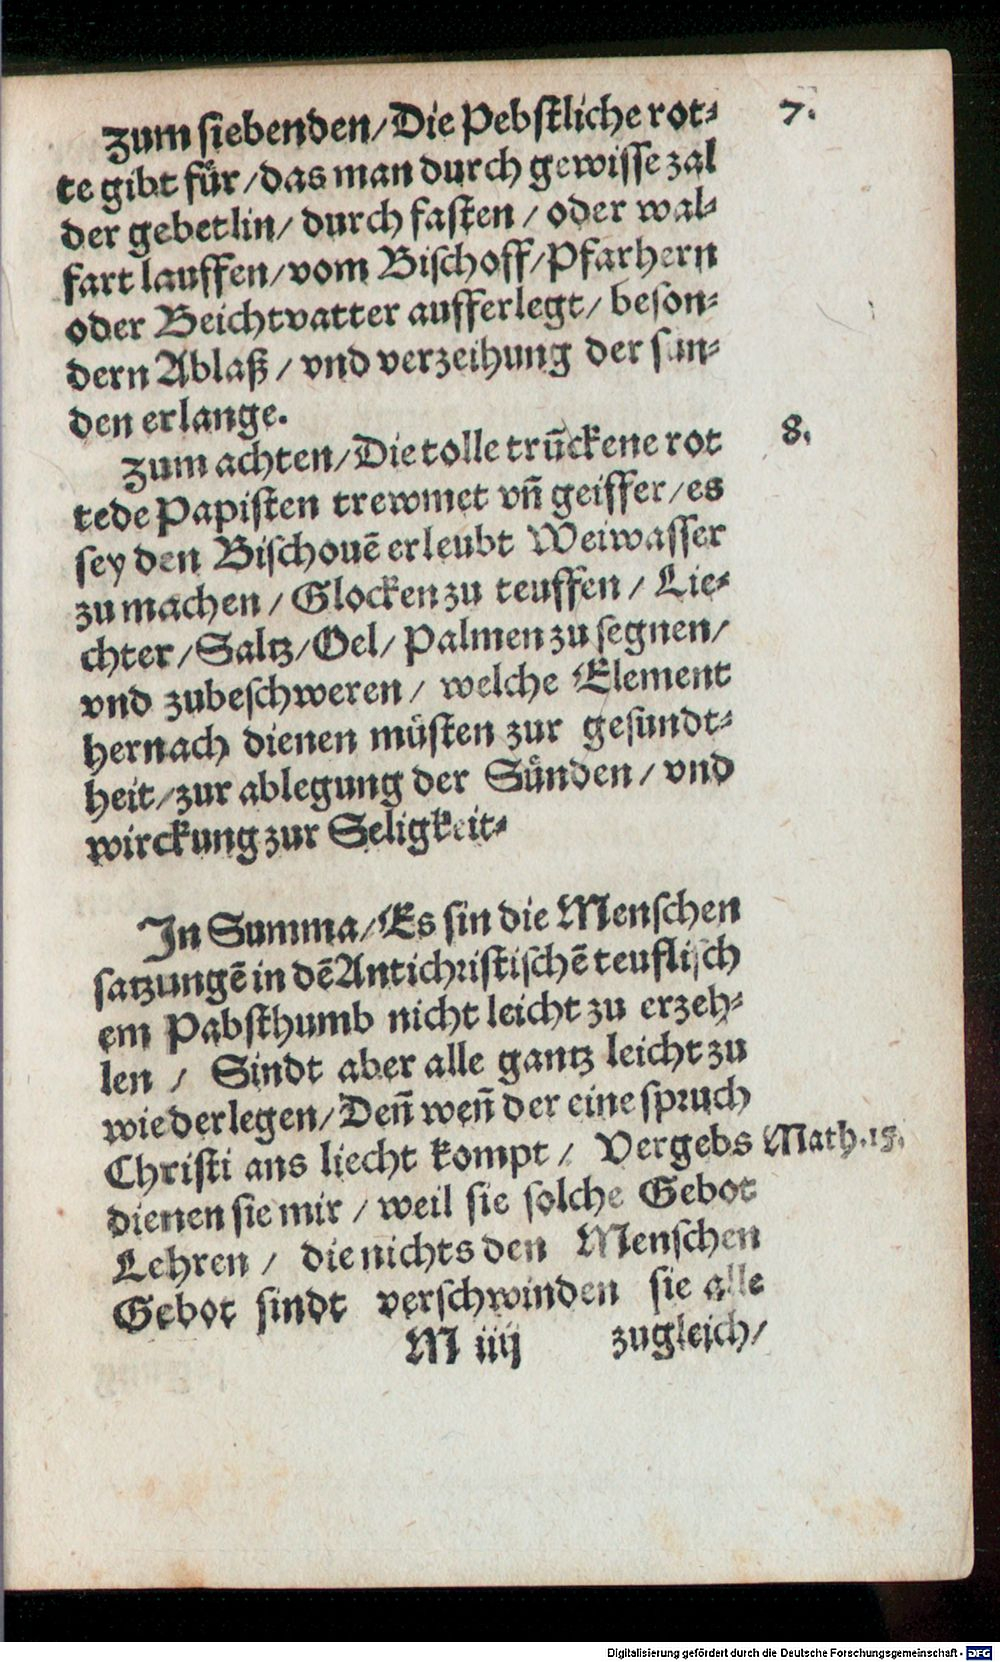 Zum siebenden/Die Pebstliche rot⸗ 7.
te gibt für/das man durch gewisse zal
der gebetlin/ durch fasten / oder wal⸗
fart lauffen/vom Bischoff/Pfarhern
oder Beichtvatter aufferlegt/ beson⸗
dern Ablaß / vnd verzeihung der sun⸗
den erlange.
Zum achten/Die tolle trũckene rot 8.
tede Papisten trewmet vñ geiffer/es
sey den Bischouẽ erleubt Weiwasser
zu machen / Glocken zu teuffen / Lie⸗
chter/Saltz/Oel/Palmen zu segnen/
vnd zubeschweren/ welche Element
hernach dienen müsten zur gesundt⸗
heit/zur ablegung der Sünden/ vnd
wirckung zur Seligkeit⸗
In Summa/Es sin die Menschen
satzungẽ in dẽ Antichristischẽ teuflisch
em Pabsthumb nicht leicht zu erzeh⸗
len / Sindt aber alle gantz leicht zu
wiederlegen/Deñ weñ der eine spruch
Christi ans liecht kompt / Vergebs Math.15.
dienen sie mir / weil sie solche Gebot
Lehren / die nichts den Menschen
Gebot sindt verschwinden sie alle
M iiij zugleich/
Digitalisierung gefördert durch die Deutsche Forschungsgemeinschaft - DFG